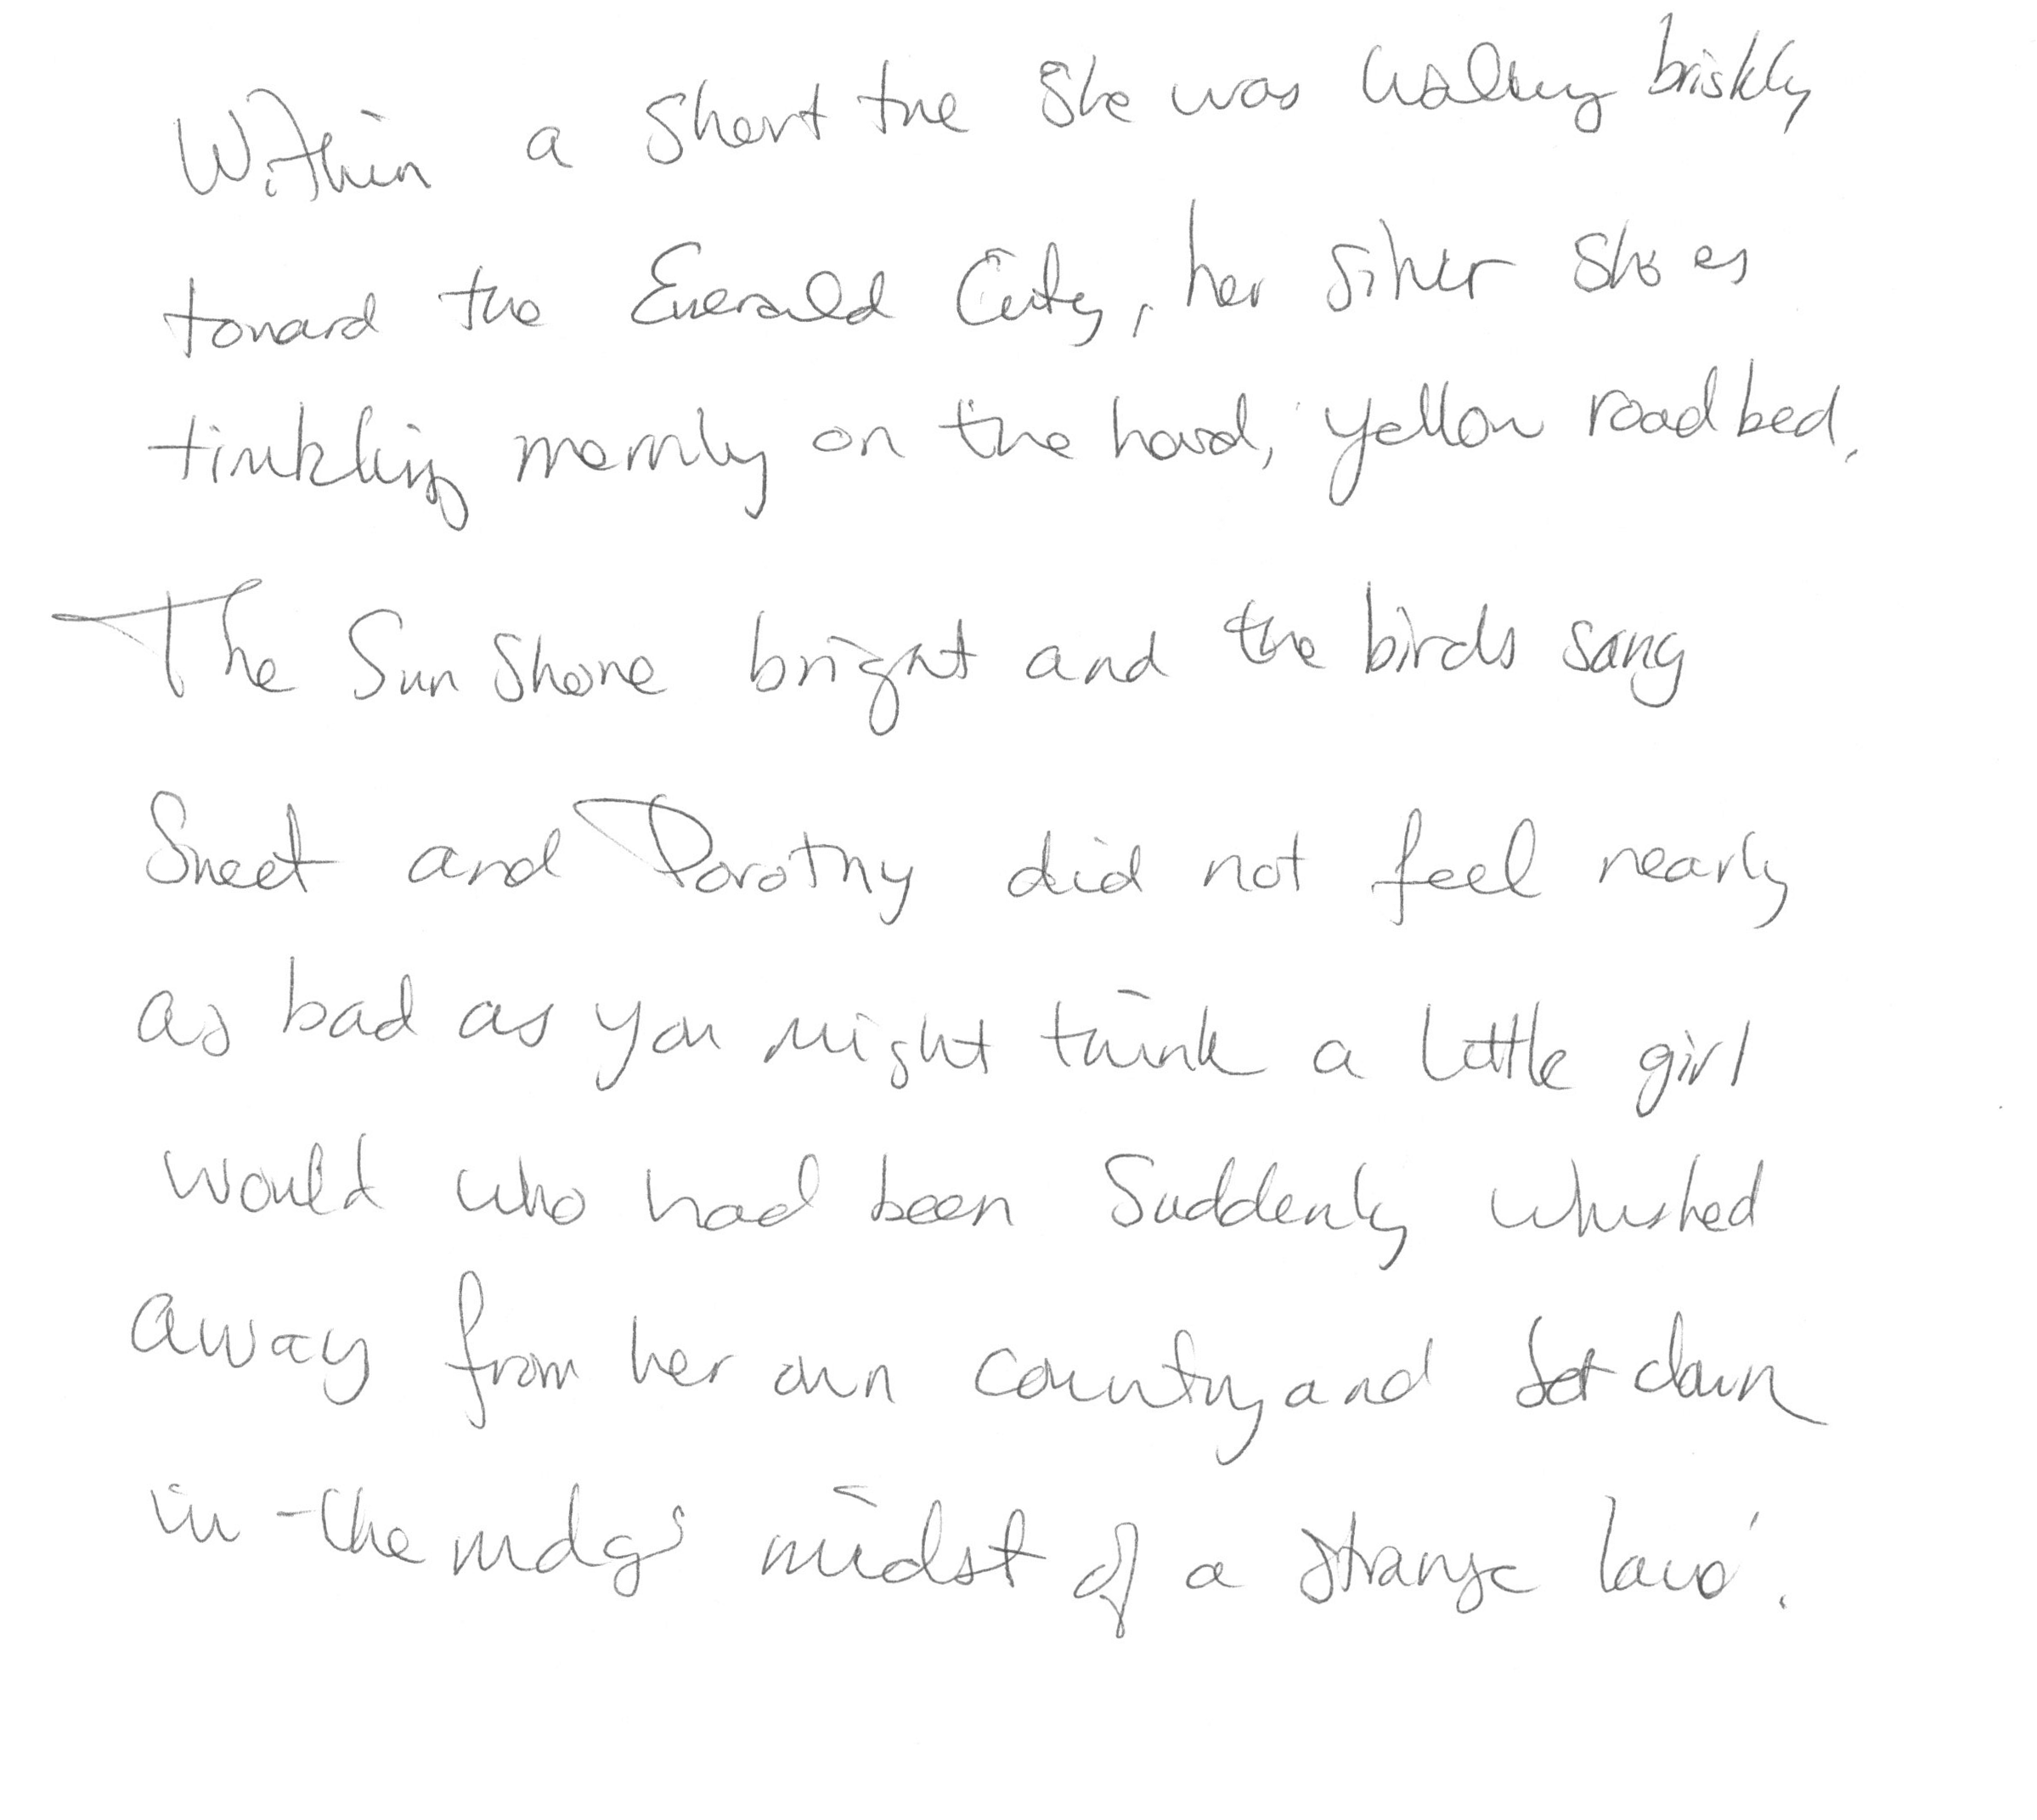 Within a short time she was walking briskly
toward the Emerald City, her silver shoes
tinkling merrily on the hard, yellow road bed.
The Sun Shone bright and the birds sang
Sweet and Dorothy did not feel nearly
as bad as you might think a little girl
would who had been Suddenly whished
away from her own country and set down
in the midst of a strange land.